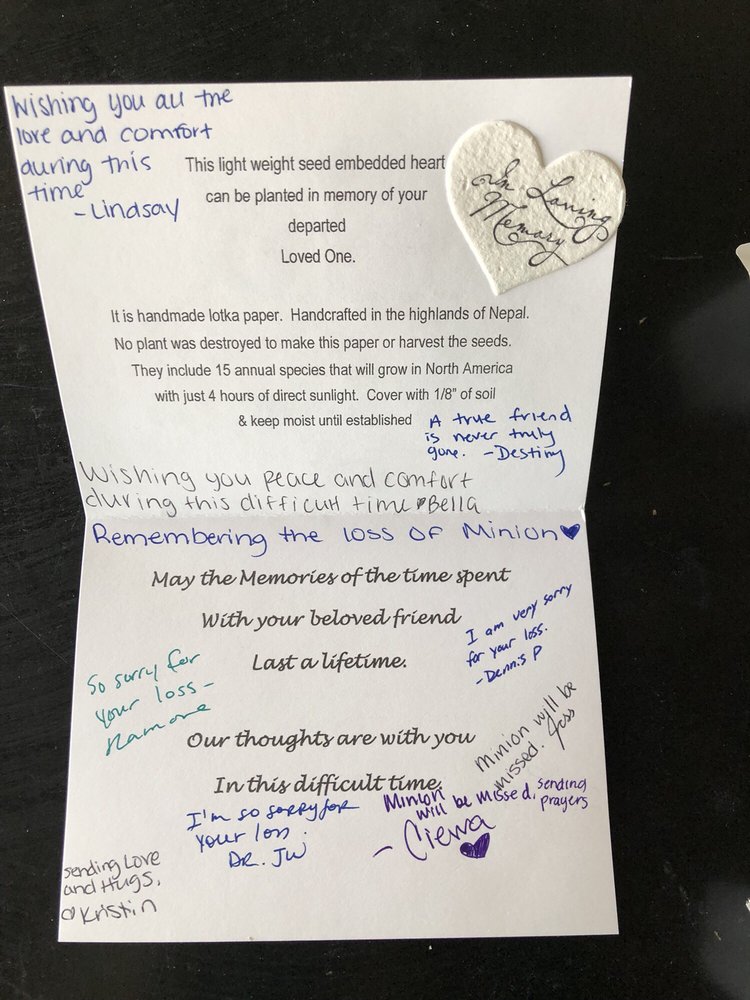 Wishing you all the
love and comfort
during this
time
- Lindsay
This light weight seed embedded heart
can be planted in memory of your
departed
Loved One.
In Loving
Memory
It is handmade lotka paper. Handcrafted in the highlands of Nepal.
No plant was destroyed to make this paper or harvest the seeds.
They include 15 annual species that will grow in North America
with just 4 hours of direct sunlight. Cover with 1/8" of soil
& keep moist until established
A true friend
is never truly
gone. - Destiny
Wishing you peace and comfort
during this difficult time ♥Bella
Remembering the loss of Minion♥
May the Memories of the time spent
With your beloved friend
Last a lifetime.
I am very sorry
for your loss.
- Dennis P
So sorry for
your loss -
Ramone
Our thoughts are with you
In this difficult time.
Minion will be
missed. Jess
I'm so sorry for
your loss.
DR. JW
Minion
will be missed, sending
prayers
- Cierra
♥
sending Love
and Hugs,
♡ Kristin